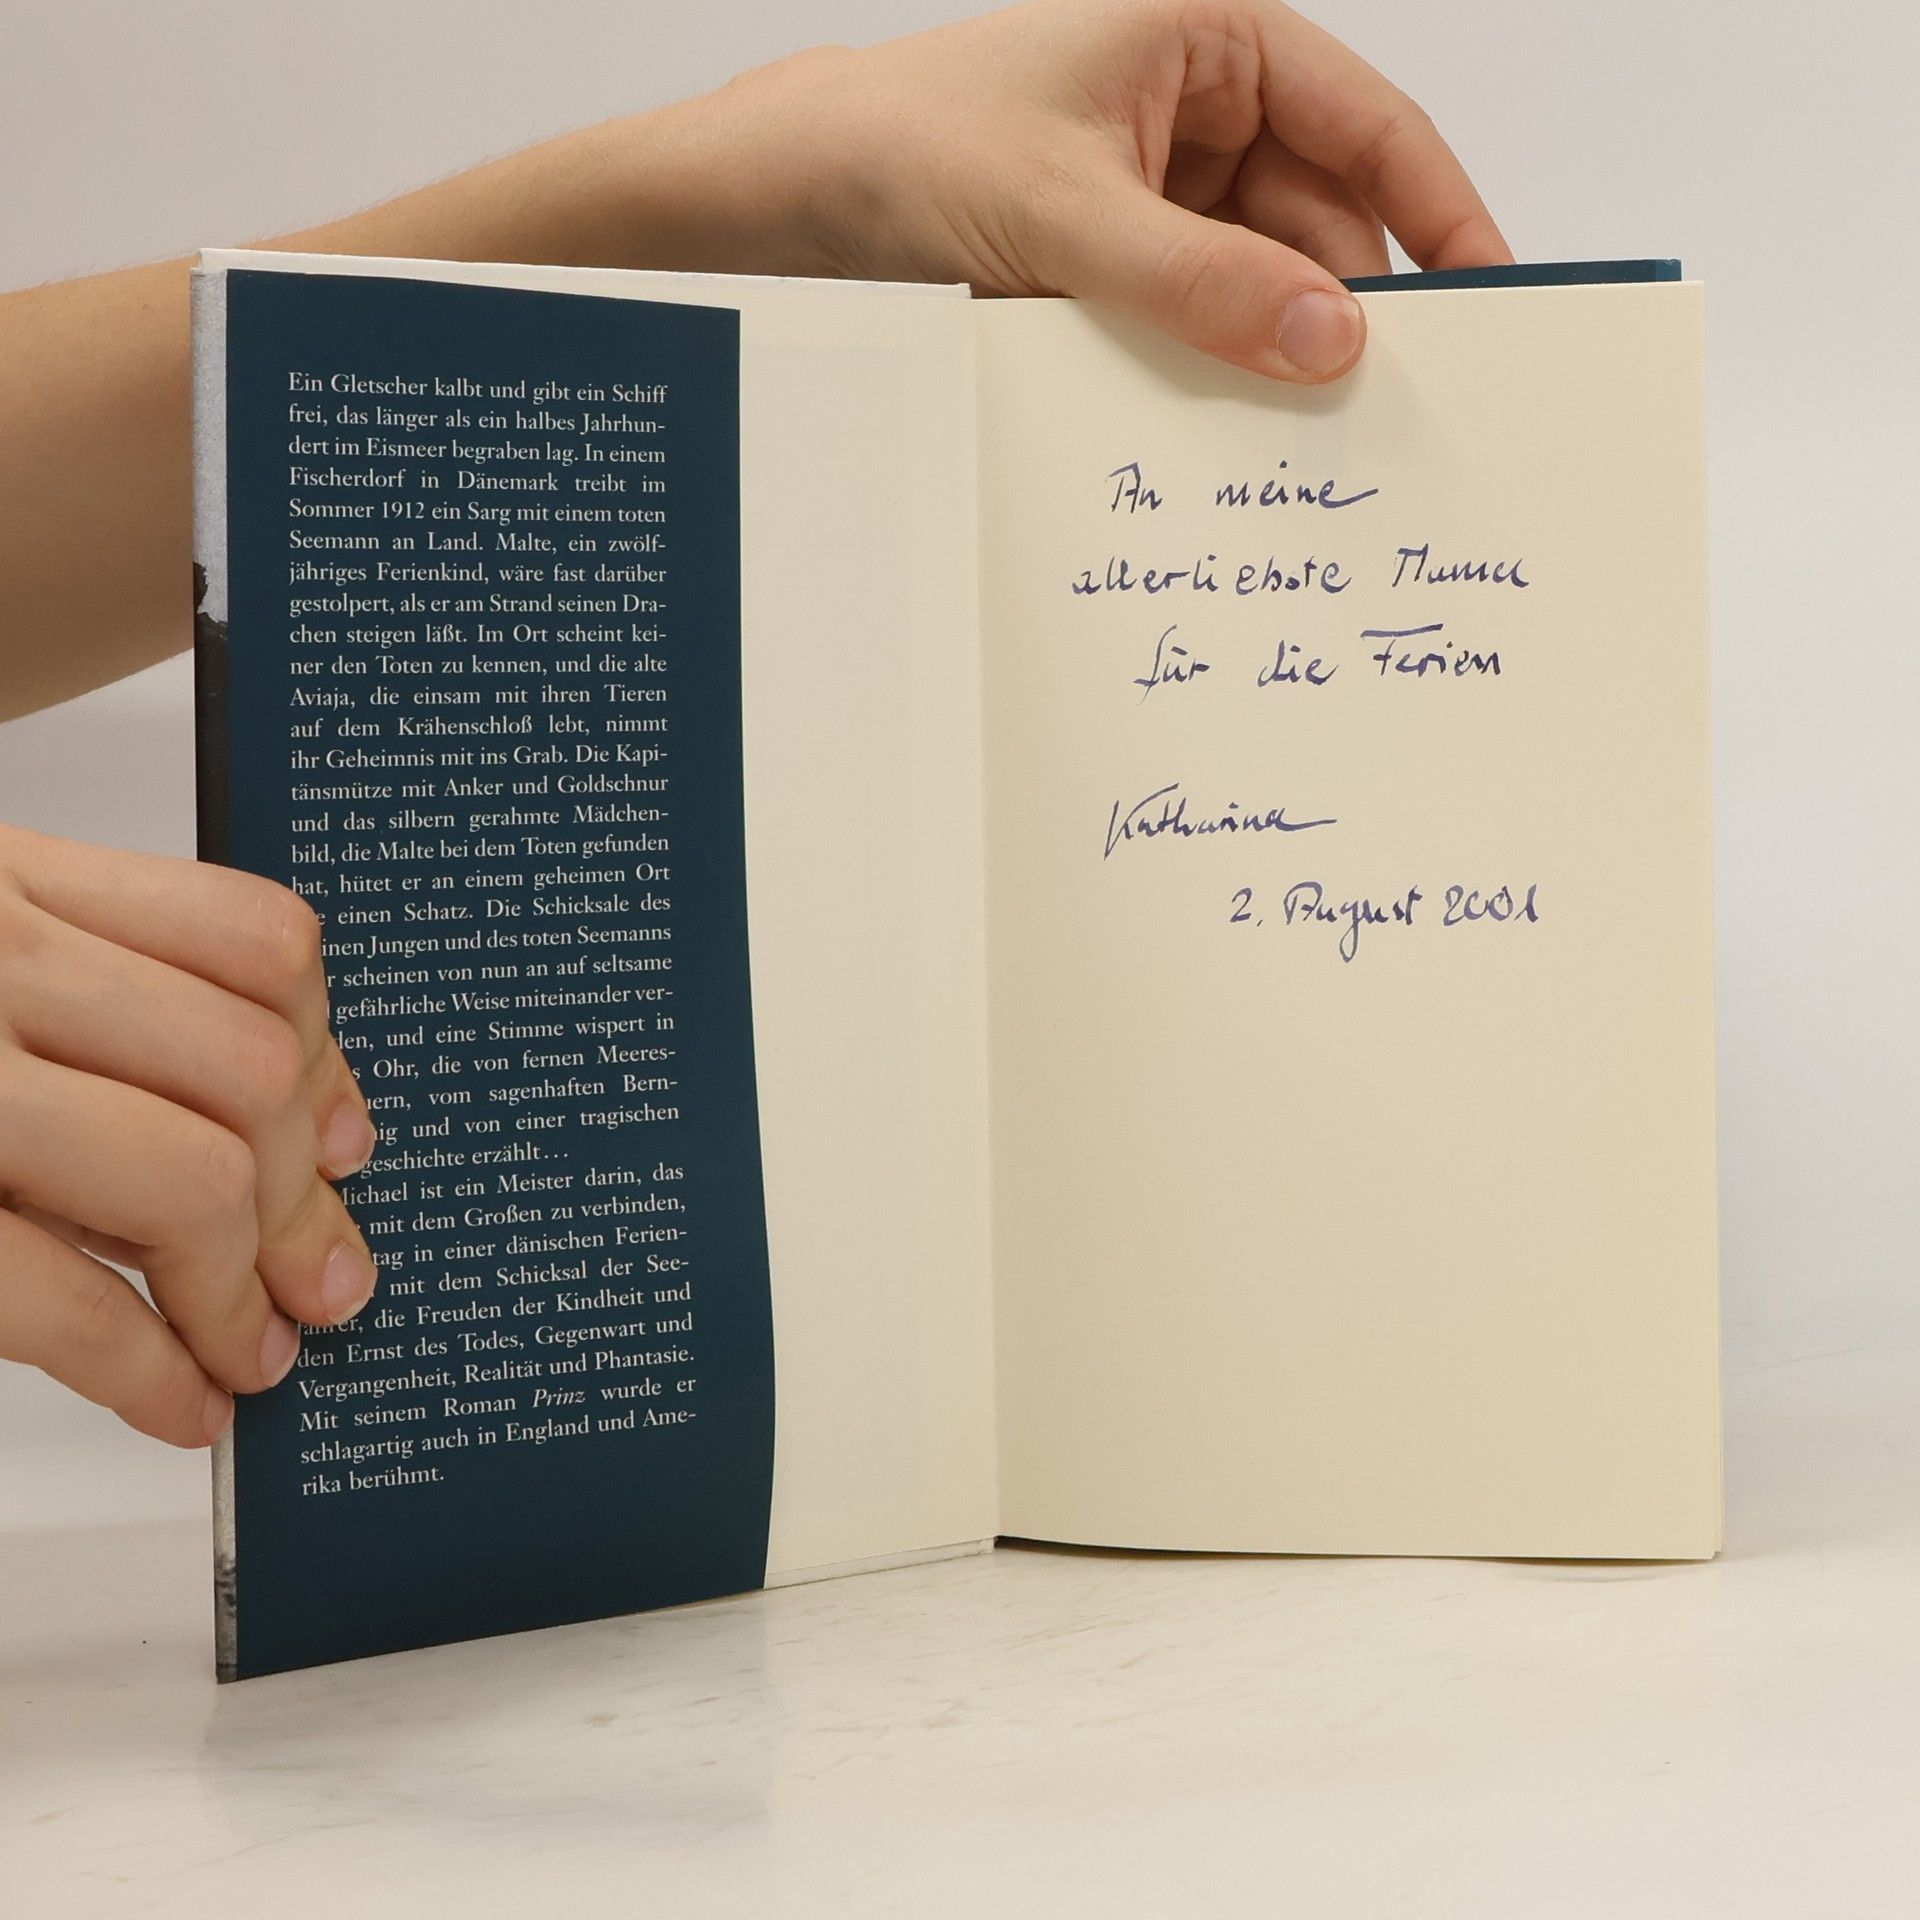 Ein Gletscher kalbt und gibt ein Schiff
frei, das länger als ein halbes Jahrhun-
dert im Eismeer begraben lag. In einem
Fischerdorf in Dänemark treibt im
Sommer 1912 ein Sarg mit einem toten
Seemann an Land. Malte, ein zwölf-
jähriges Ferienkind, wäre fast darüber
gestolpert, als er am Strand seinen Dra-
chen steigen läßt. Im Ort scheint kei-
ner den Toten zu kennen, und die alte
Aviaja, die einsam mit ihren Tieren
auf dem Krähenschloß lebt, nimmt
ihr Geheimnis mit ins Grab. Die Kapi-
tänsmütze mit Anker und Goldschnur
und das silbern gerahmte Mädchen-
bild, die Malte bei dem Toten gefunden
hat, hütet er an einem geheimen Ort
einen Schatz. Die Schicksale des
Jungen und des toten Seemanns
scheinen von nun an auf seltsame
gefährliche Weise miteinander ver-
und eine Stimme wispert in
Ohr, die von fernen Meeres-
vom sagenhaften Bern-
und von einer tragischen
geschichte erzählt...
ist ein Meister darin, das
mit dem Großen zu verbinden,
in einer dänischen Ferien-
mit dem Schicksal der See-
fahrer, die Freuden der Kindheit und
den Ernst des Todes, Gegenwart und
Vergangenheit, Realität und Phantasie.
Mit seinem Roman Prinz wurde er
schlagartig auch in England und Ame-
rika berühmt.
An meine
allerliebste Mama
für die Ferien
Katharina
2. August 2001